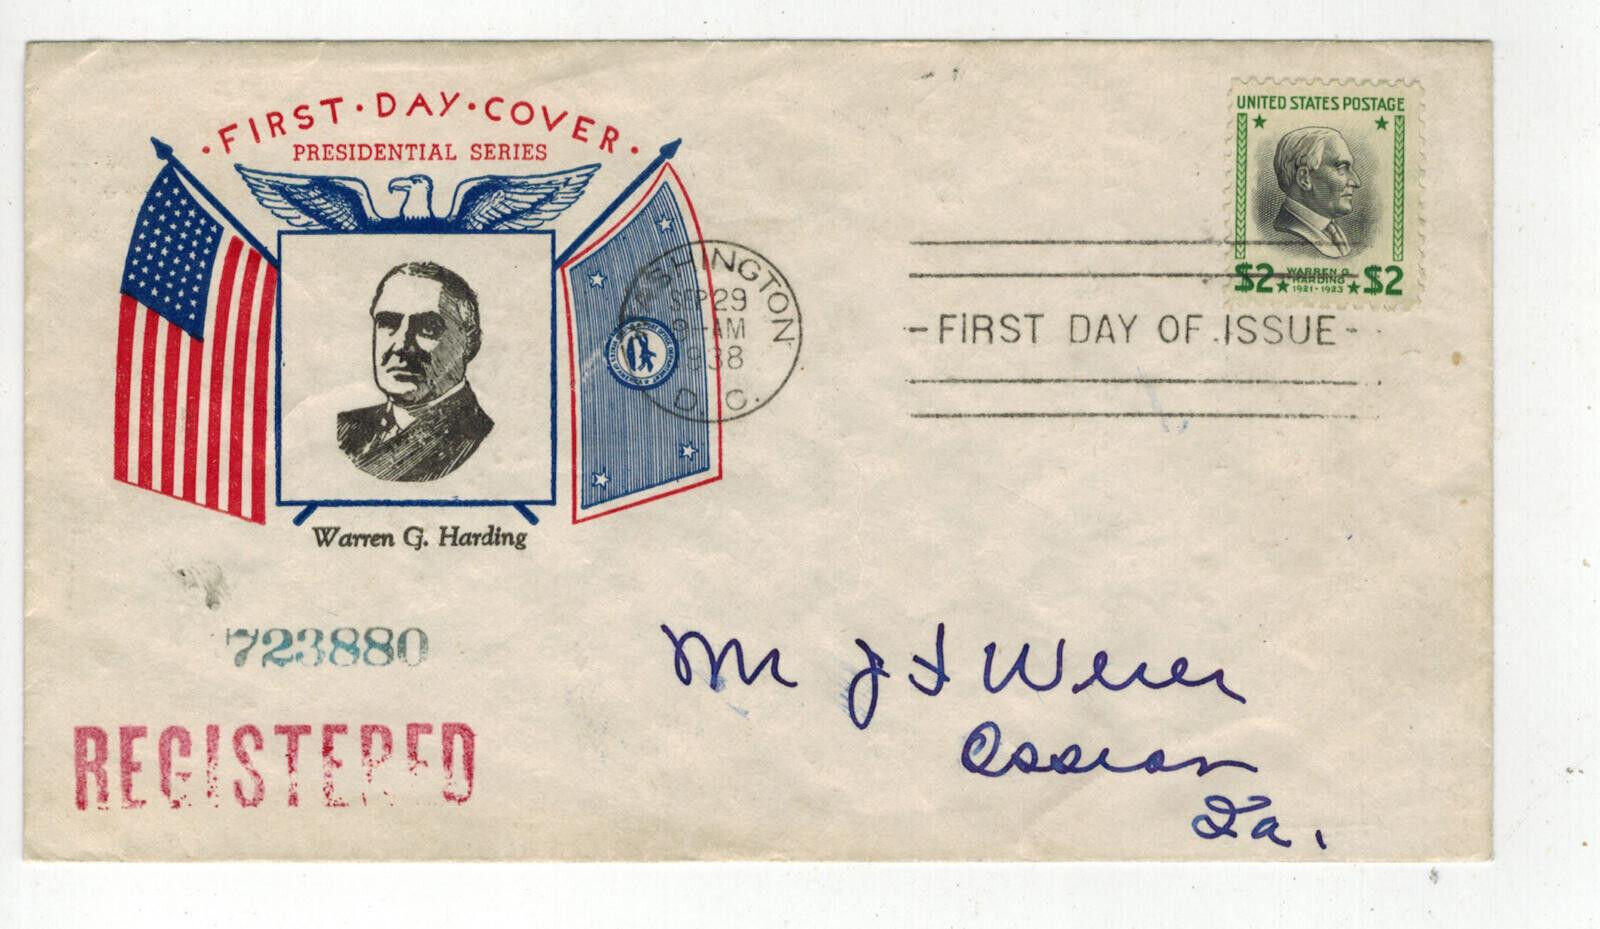 ·FIRST·DAY·COVER·
PRESIDENTIAL SERIES
Warren G. Harding
WASHINGTON
SEP 29
9-AM
1938
D. C.
UNITED STATES POSTAGE
$2 WARREN G. HARDING 1921-1923 $2
-FIRST DAY OF ISSUE-
723880
REGISTERED
Mr J F Weser
Ossian
Ia.